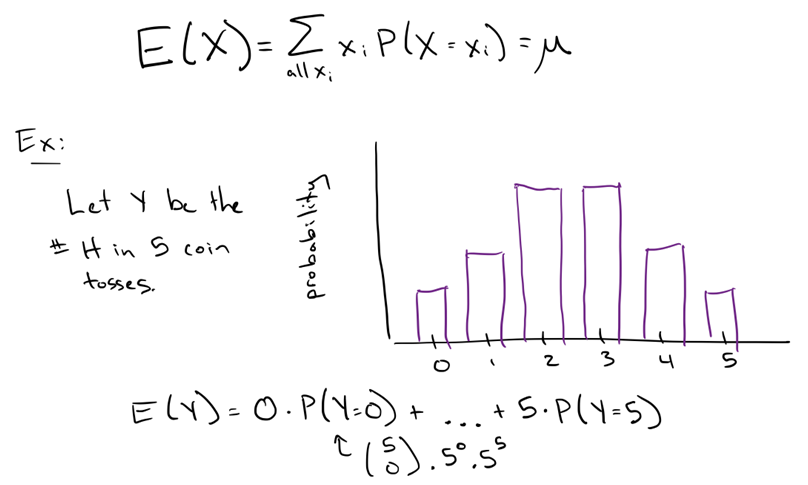 E(X) = ∑ xᵢ P(X = xᵢ) = μ
all xᵢ
Ex:
Let Y be the
# H in 5 coin
tosses.
probability
0 1 2 3 4 5
E(Y) = 0 · P(Y=0) + ... + 5 · P(Y=5)
↑ (5 0) · 5⁰ · 5⁵